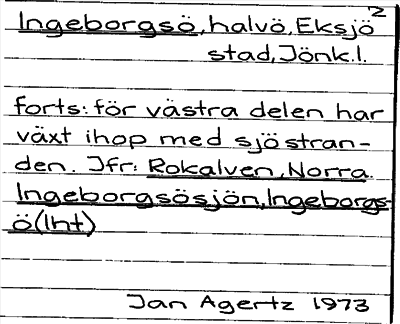 2
Ingeborgsö, halvö, Eksjö
stad, Jönk.l.
forts: för västra delen har
växt ihop med sjöstran-
den. Jfr: Rokalven, Norra.
Ingeborgsösjön, Ingeborgs-
ö (Int)
Jan Agertz 1973